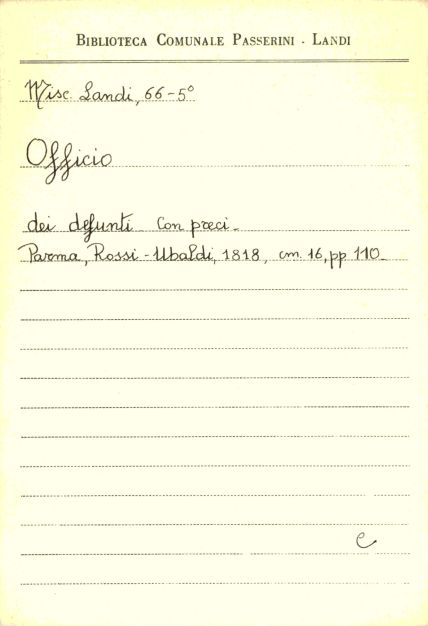 BIBLIOTECA COMUNALE PASSERINI - LANDI
Misc. Landi, 66-5°
Officio
dei defunti con preci_
Parma, Rossi-Ubaldi, 1818, cm. 16, pp 110_
e